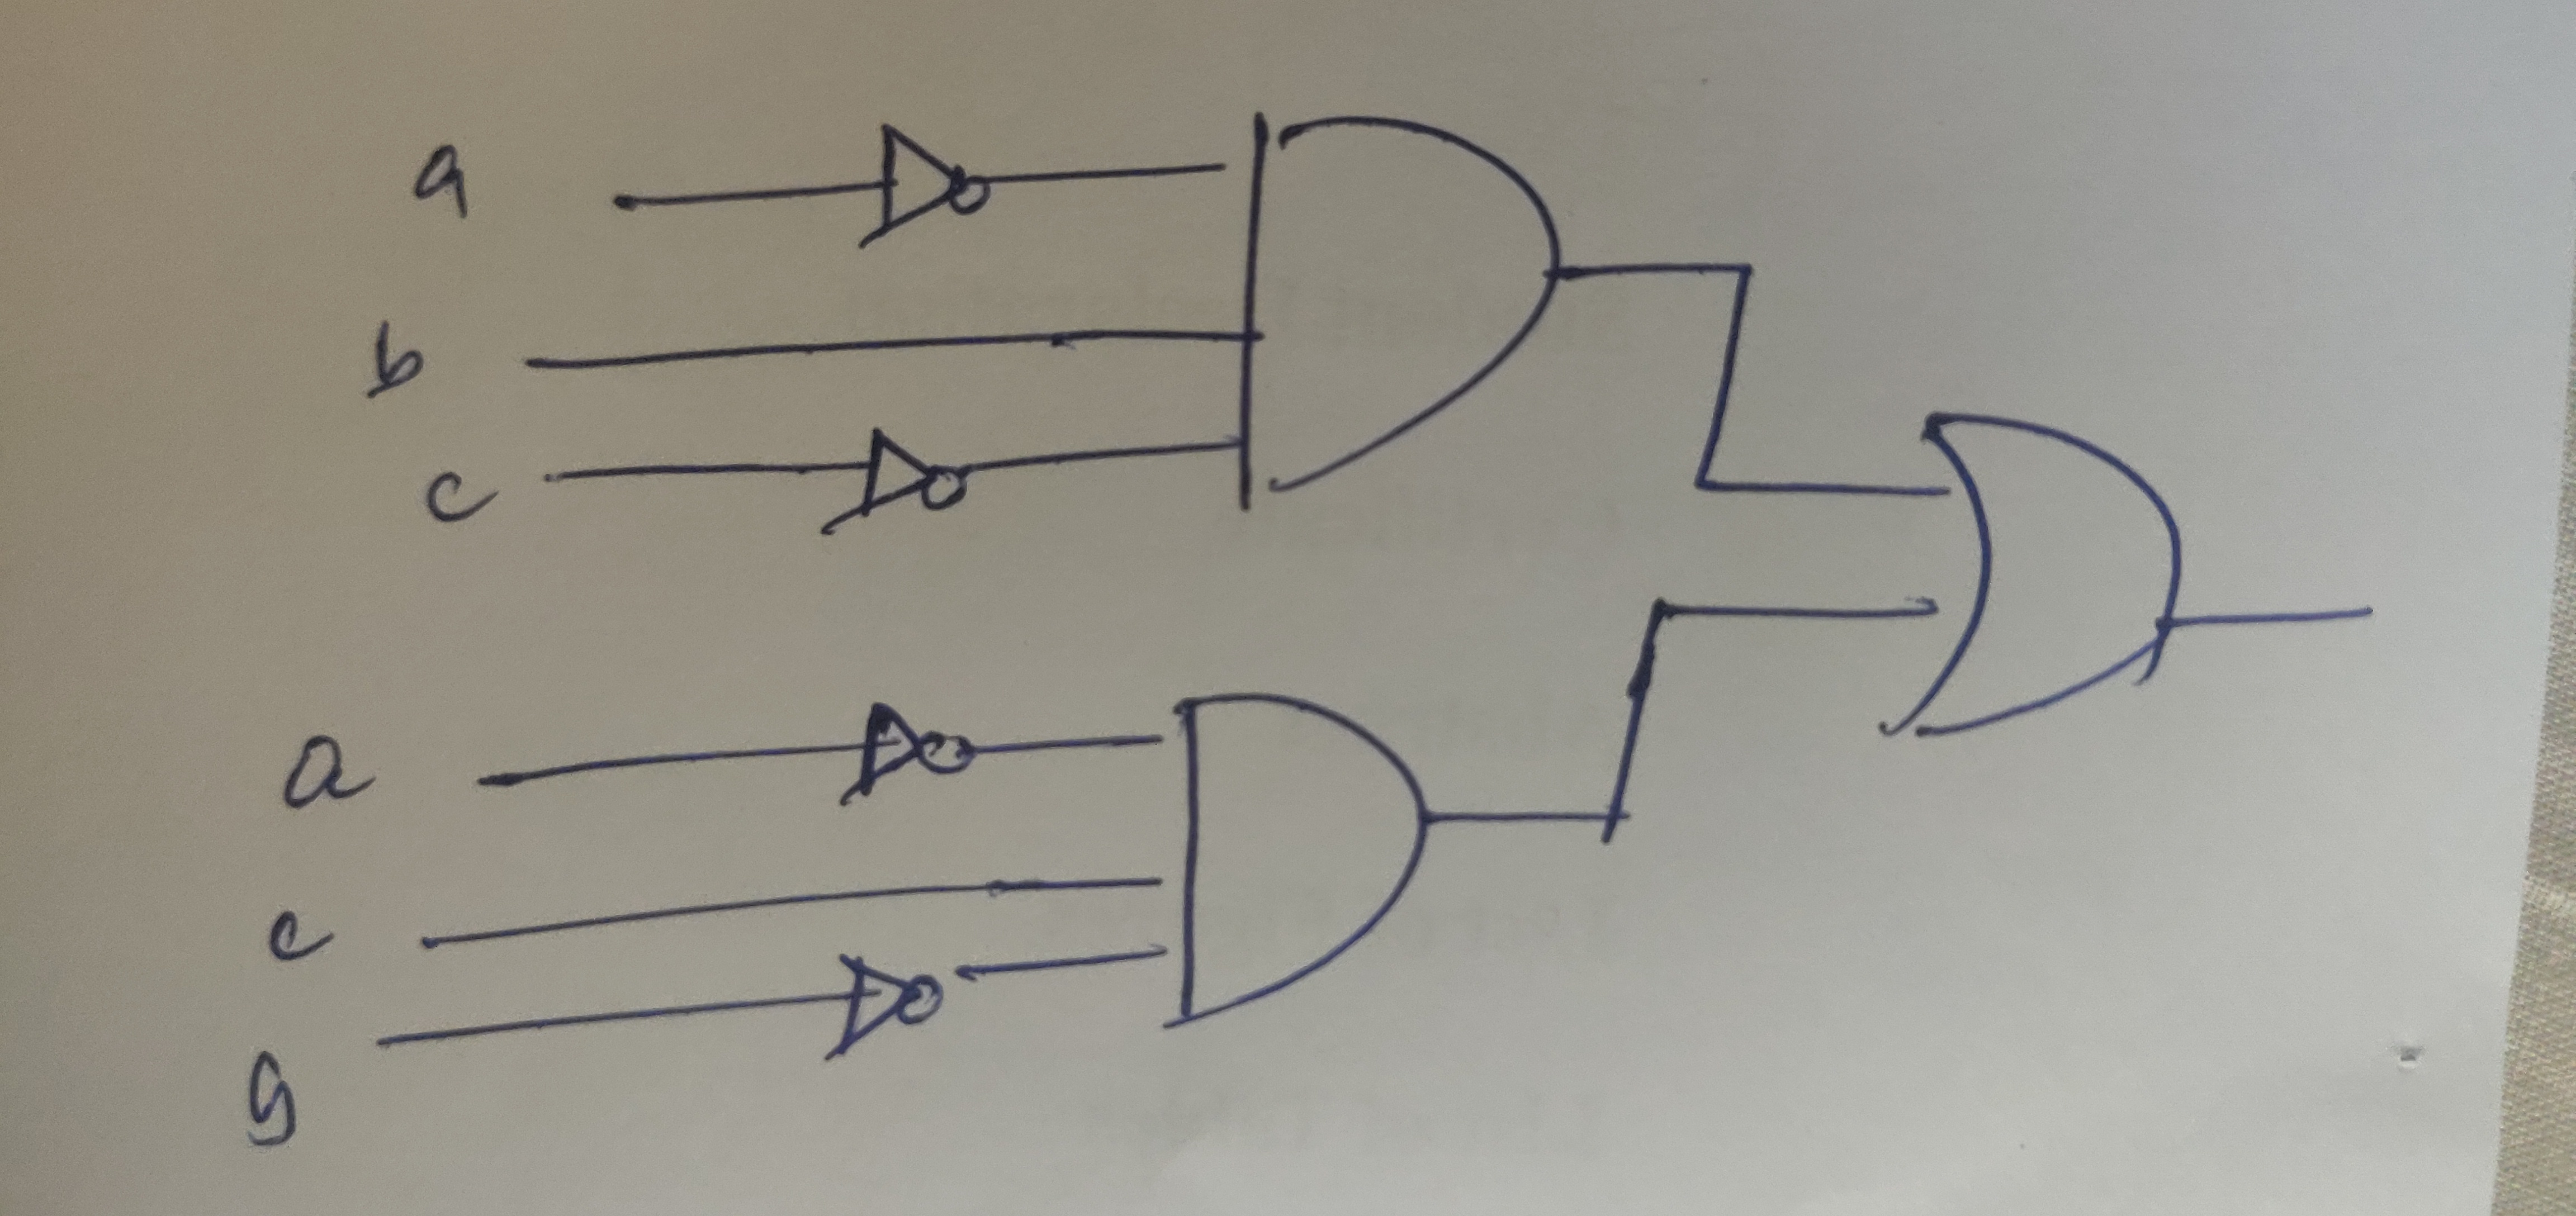 a
b
c
a
c
g